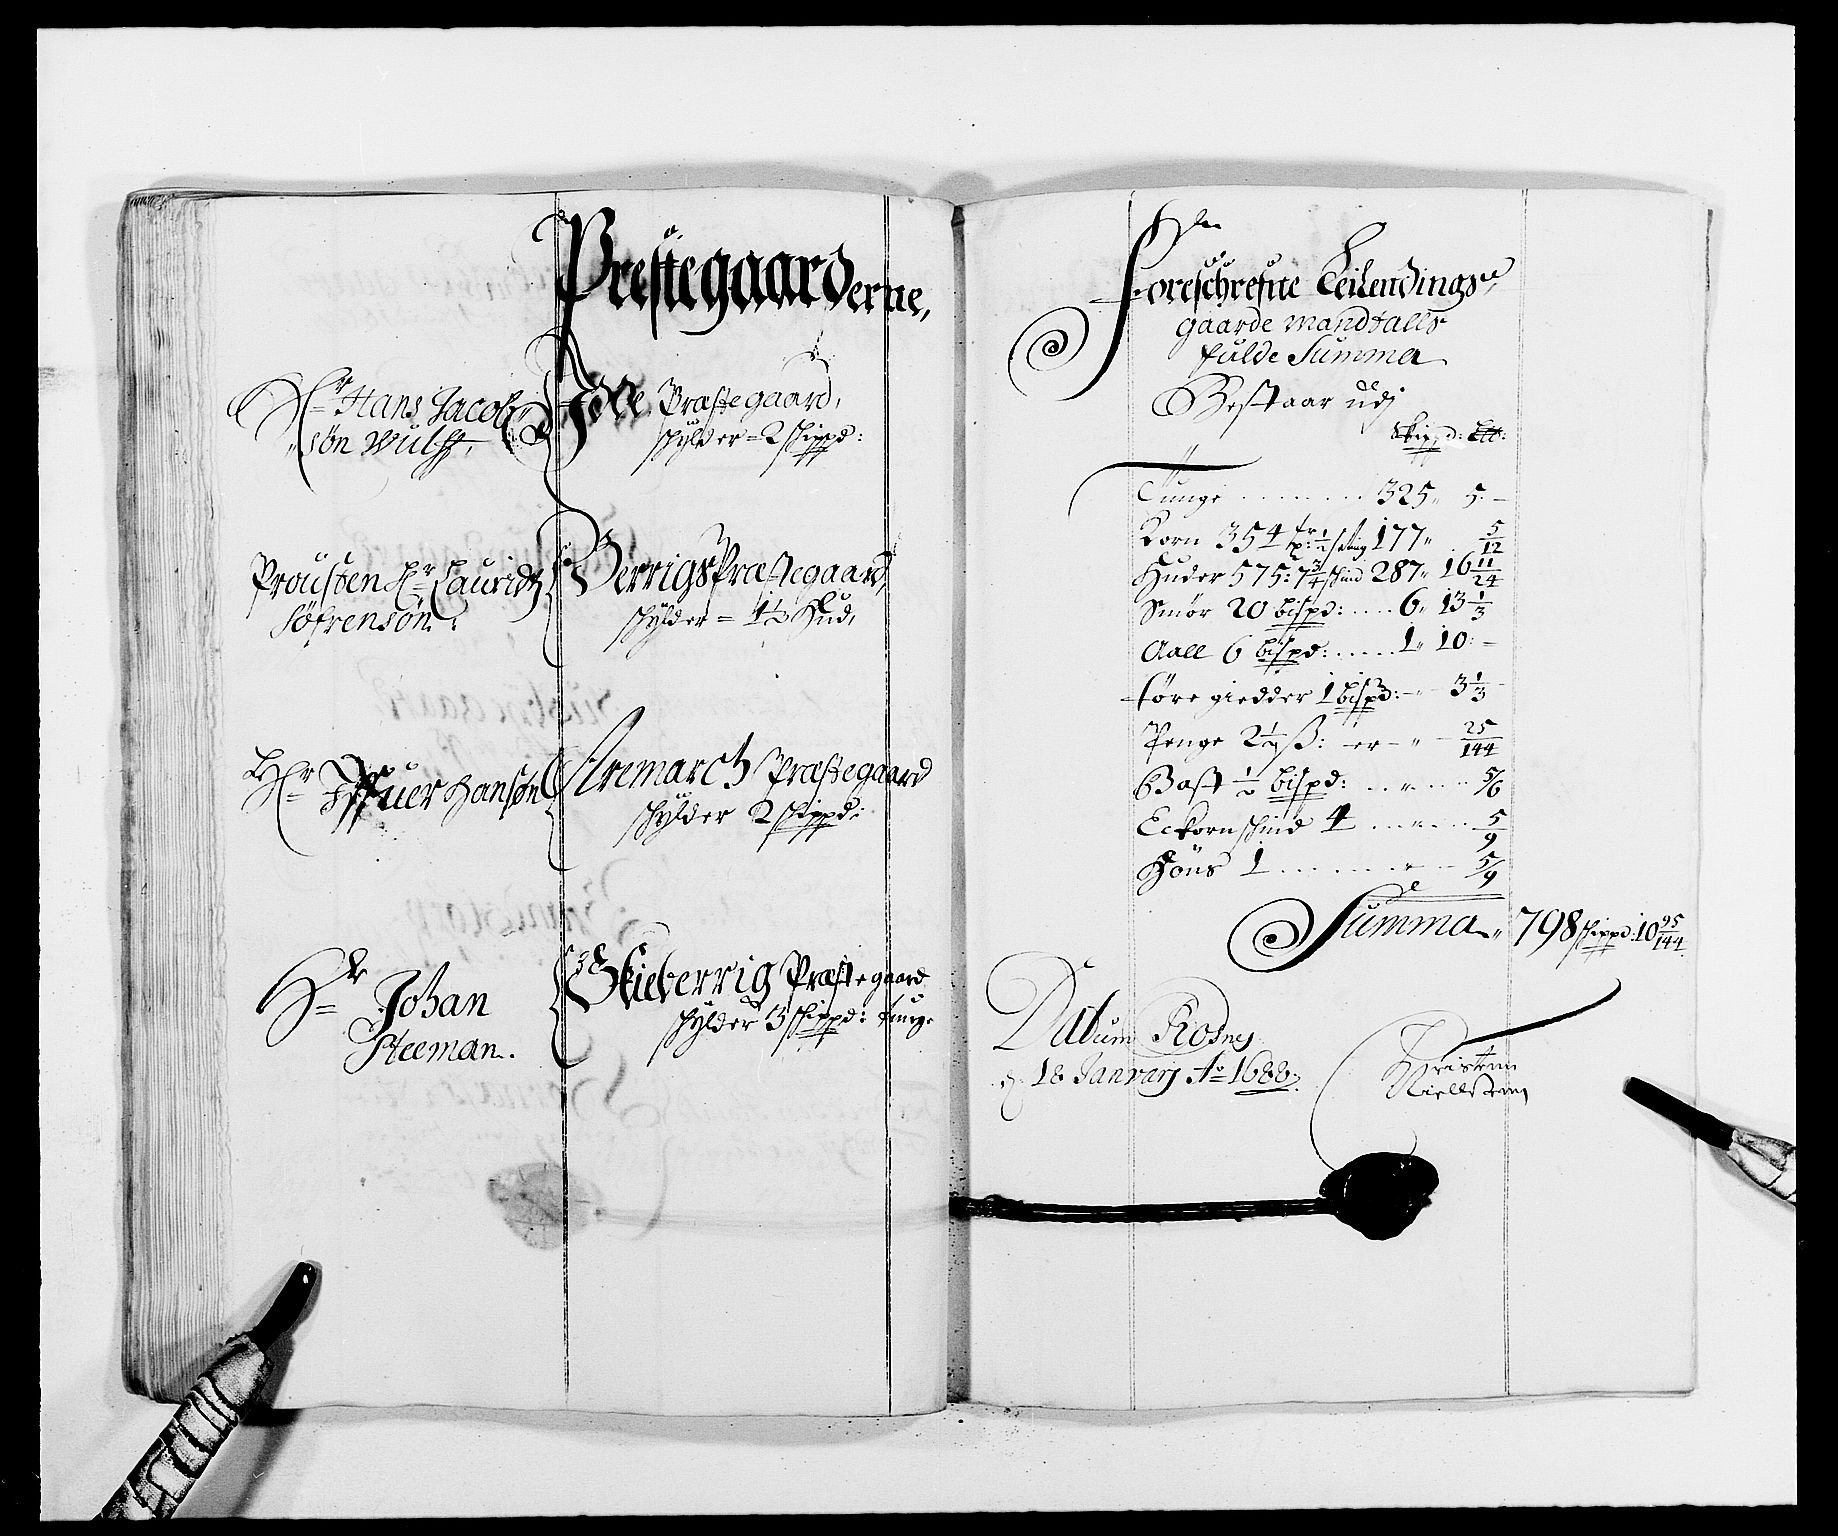 Prestegaarderne,
Hr Hans Jacob
søn Wulff,
Idde Præstegaard,
schylder = 2 schippd:
Prousten Hr Lauridtz
Søfrensøn:
Berrigs Præstegaard,
schylder = 1½ Hud,
Hr Iffuer Hansøn
Aremarch Præstegaard
schylder 2 schippd:
Hr Johan
Steeman.
Skieberrig Præstegaard
schylder 3 schippd: tunge
Foreschrefne Leilendings
gaarde Mandtalls
fulde Summa
Bestaar udj
Schippd: Ltt:
Tunge ........ 325„ 5: –
Korn 354 177„ 5/12
Huder 575: 7¾ schind 287„ 16 11/24
Smør 20 bispd: .... 6„ 13 1/3
Aall 6 bispd: ..... 1„ 10: –
tøre giedder 1 bispd: – „ – 3 1/3
Penge 2½ ß: er – „ – 25/144
Bast ½ bispd: ..„... 5/6
Eckornschind 4 ...„... 5/9
Høns 1 ......„.. 5/9
Summa„ 798 schippd: 10 95/144
Datum Rosnes
d. 18 Januarj Ao 1688,
Christen
Niellssenn